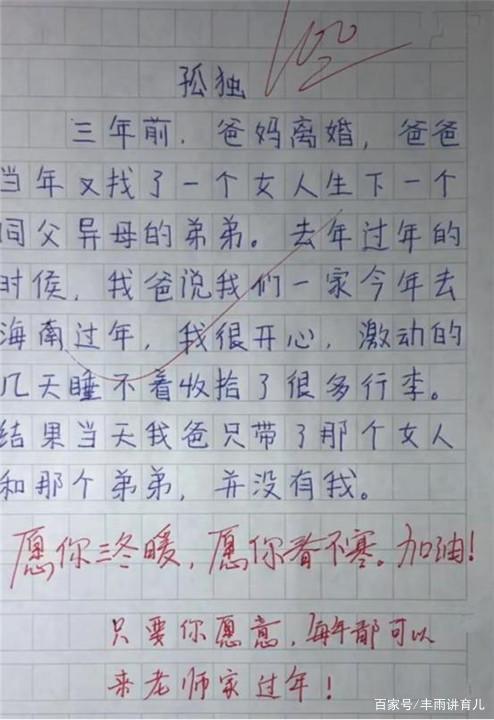 100
孤独
三年前，爸妈离婚，爸爸
当年又找了一个女人生下一个
同父异母的弟弟。去年过年的
时侯，我爸说我们一家今年去
海南过年，我很开心，激动的
几天睡不着收拾了很多行李。
结果当天我爸只带了那个女人
和那个弟弟，并没有我。
愿你三冬暖，愿你春不寒。加油！
只要你愿意，每年都可以
来老师家过年！
百家号/丰雨讲育儿